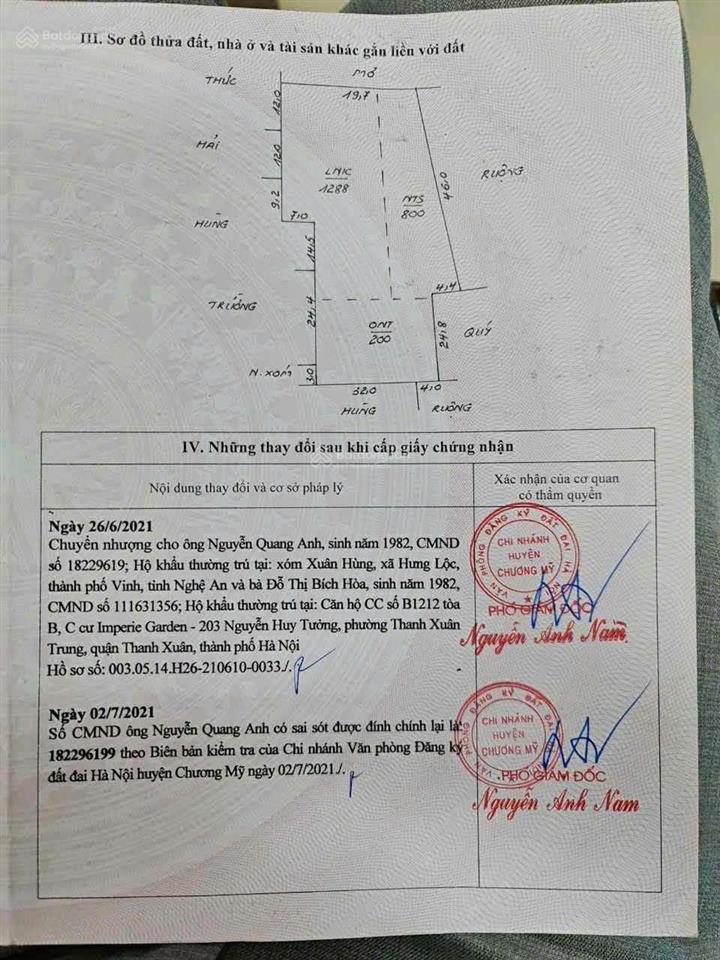 III. Sơ đồ thửa đất, nhà ở và tài sản khác gắn liền với đất
MỎ
THỨC
12,0
19,7
HẢI
12,0
LNK
1288
NTS
800
46,0
RUỘNG
9,2
HÙNG
7,0
14,5
TRƯỜNG
24,4
4,4
ONT
200
24,8
QUÝ
N. XÓM
3,0
32,0
4,0
HÙNG
RUỘNG
IV. Những thay đổi sau khi cấp giấy chứng nhận
Nội dung thay đổi và cơ sở pháp lý
Xác nhận của cơ quan
có thẩm quyền
Ngày 26/6/2021
Chuyển nhượng cho ông Nguyễn Quang Anh, sinh năm 1982, CMND
số 18229619; Hộ khẩu thường trú tại: xóm Xuân Hùng, xã Hưng Lộc,
thành phố Vinh, tỉnh Nghệ An và bà Đỗ Thị Bích Hòa, sinh năm 1982,
CMND số 111631356; Hộ khẩu thường trú tại: Căn hộ CC số B1212 tòa
B, C cư Imperie Garden - 203 Nguyễn Huy Tưởng, phường Thanh Xuân
Trung, quận Thanh Xuân, thành phố Hà Nội
Hồ sơ số: 003.05.14.H26-210610-0033./.
VĂN PHÒNG ĐĂNG KÝ ĐẤT ĐAI HÀ NỘI
CHI NHÁNH
HUYỆN
CHƯƠNG MỸ
PHÓ GIÁM ĐỐC
Nguyễn Anh Nam
Ngày 02/7/2021
Số CMND ông Nguyễn Quang Anh có sai sót được đính chính lại là:
182296199 theo Biên bản kiểm tra của Chi nhánh Văn phòng Đăng ký
đất đai Hà Nội huyện Chương Mỹ ngày 02/7/2021./.
VĂN PHÒNG ĐĂNG KÝ ĐẤT ĐAI HÀ NỘI
CHI NHÁNH
HUYỆN
CHƯƠNG MỸ
PHÓ GIÁM ĐỐC
Nguyễn Anh Nam